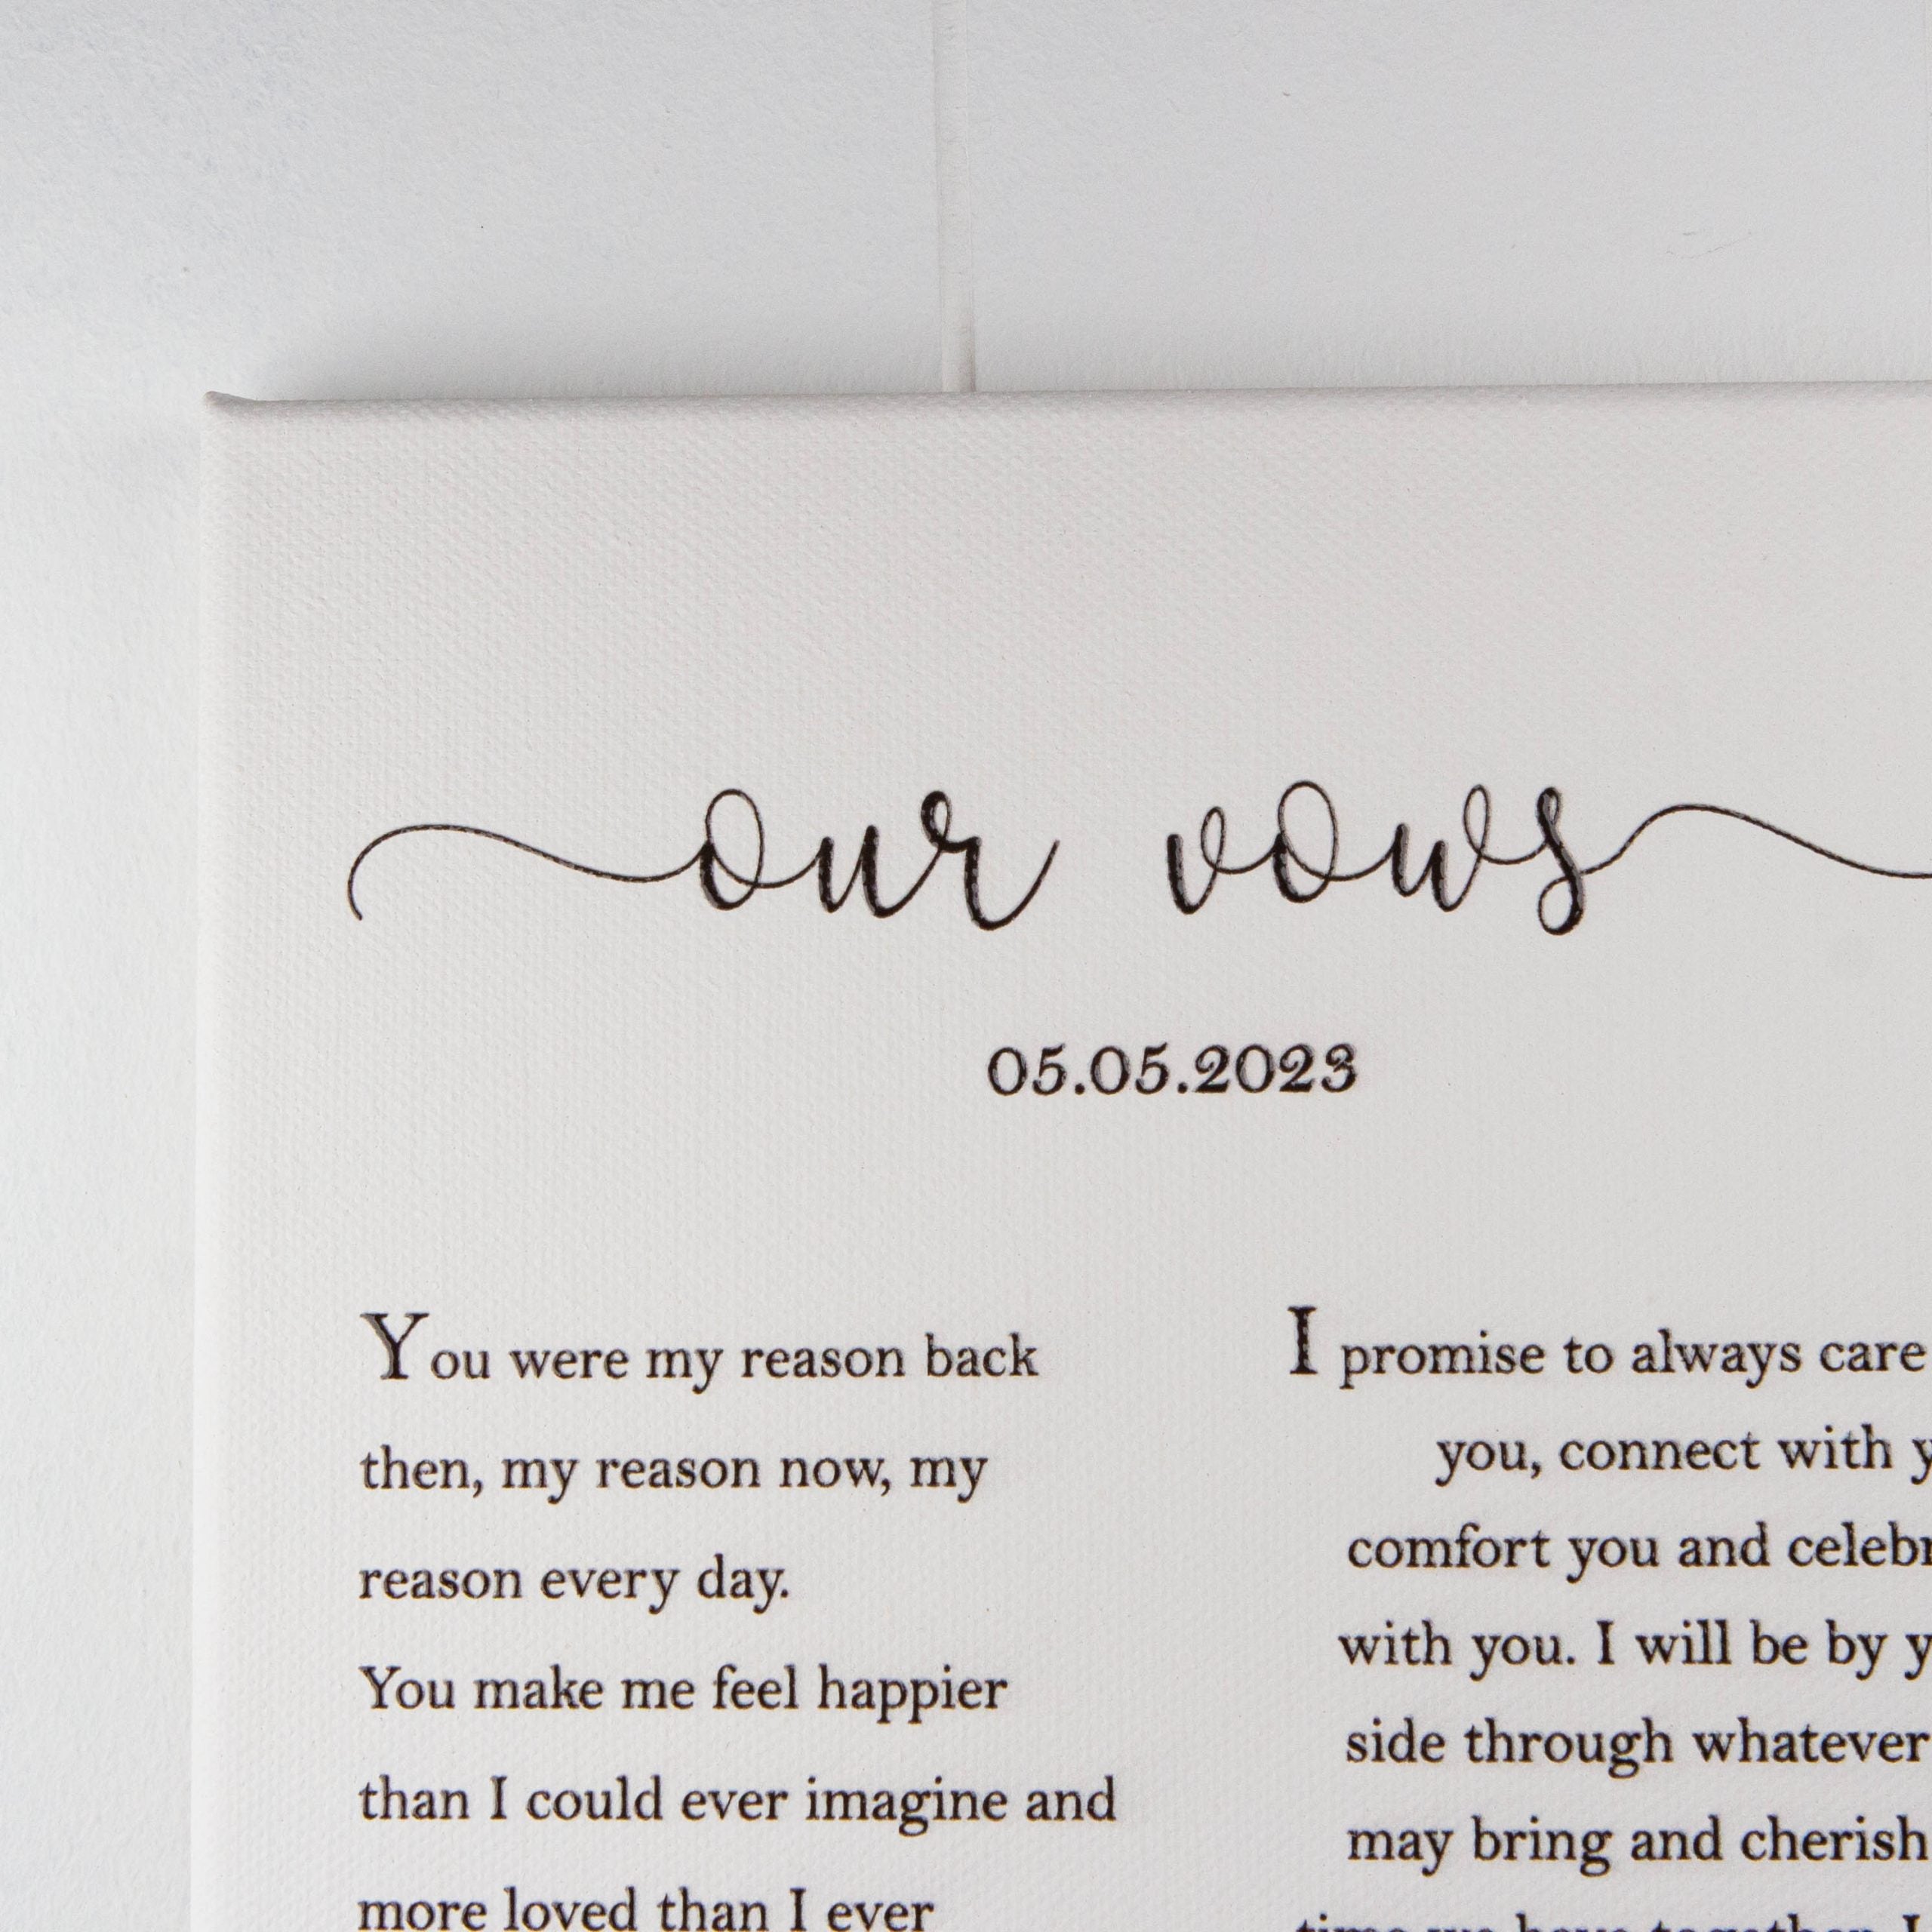 our vows
05.05.2023
You were my reason back
then, my reason now, my
reason every day.
You make me feel happier
than I could ever imagine and
more loved than I ever
I promise to always care
you, connect with
comfort you and
with you. I will be by
side through whatever
may bring and cherish
time we have together. I